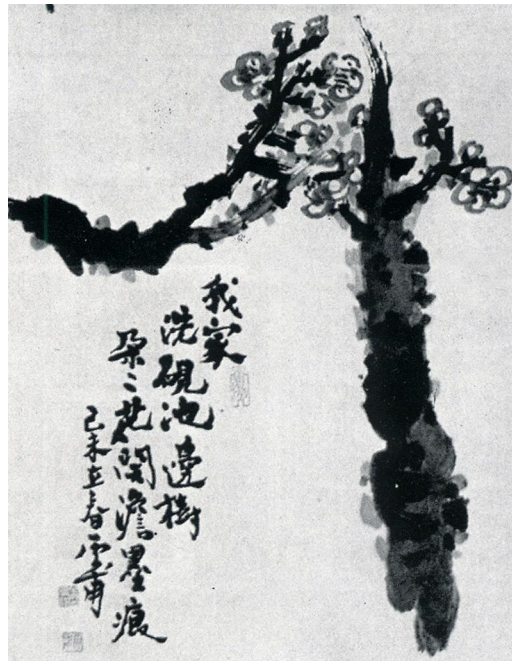 我家
洗硯池邊樹
朶〻花開澹墨痕
己未立春雲甫